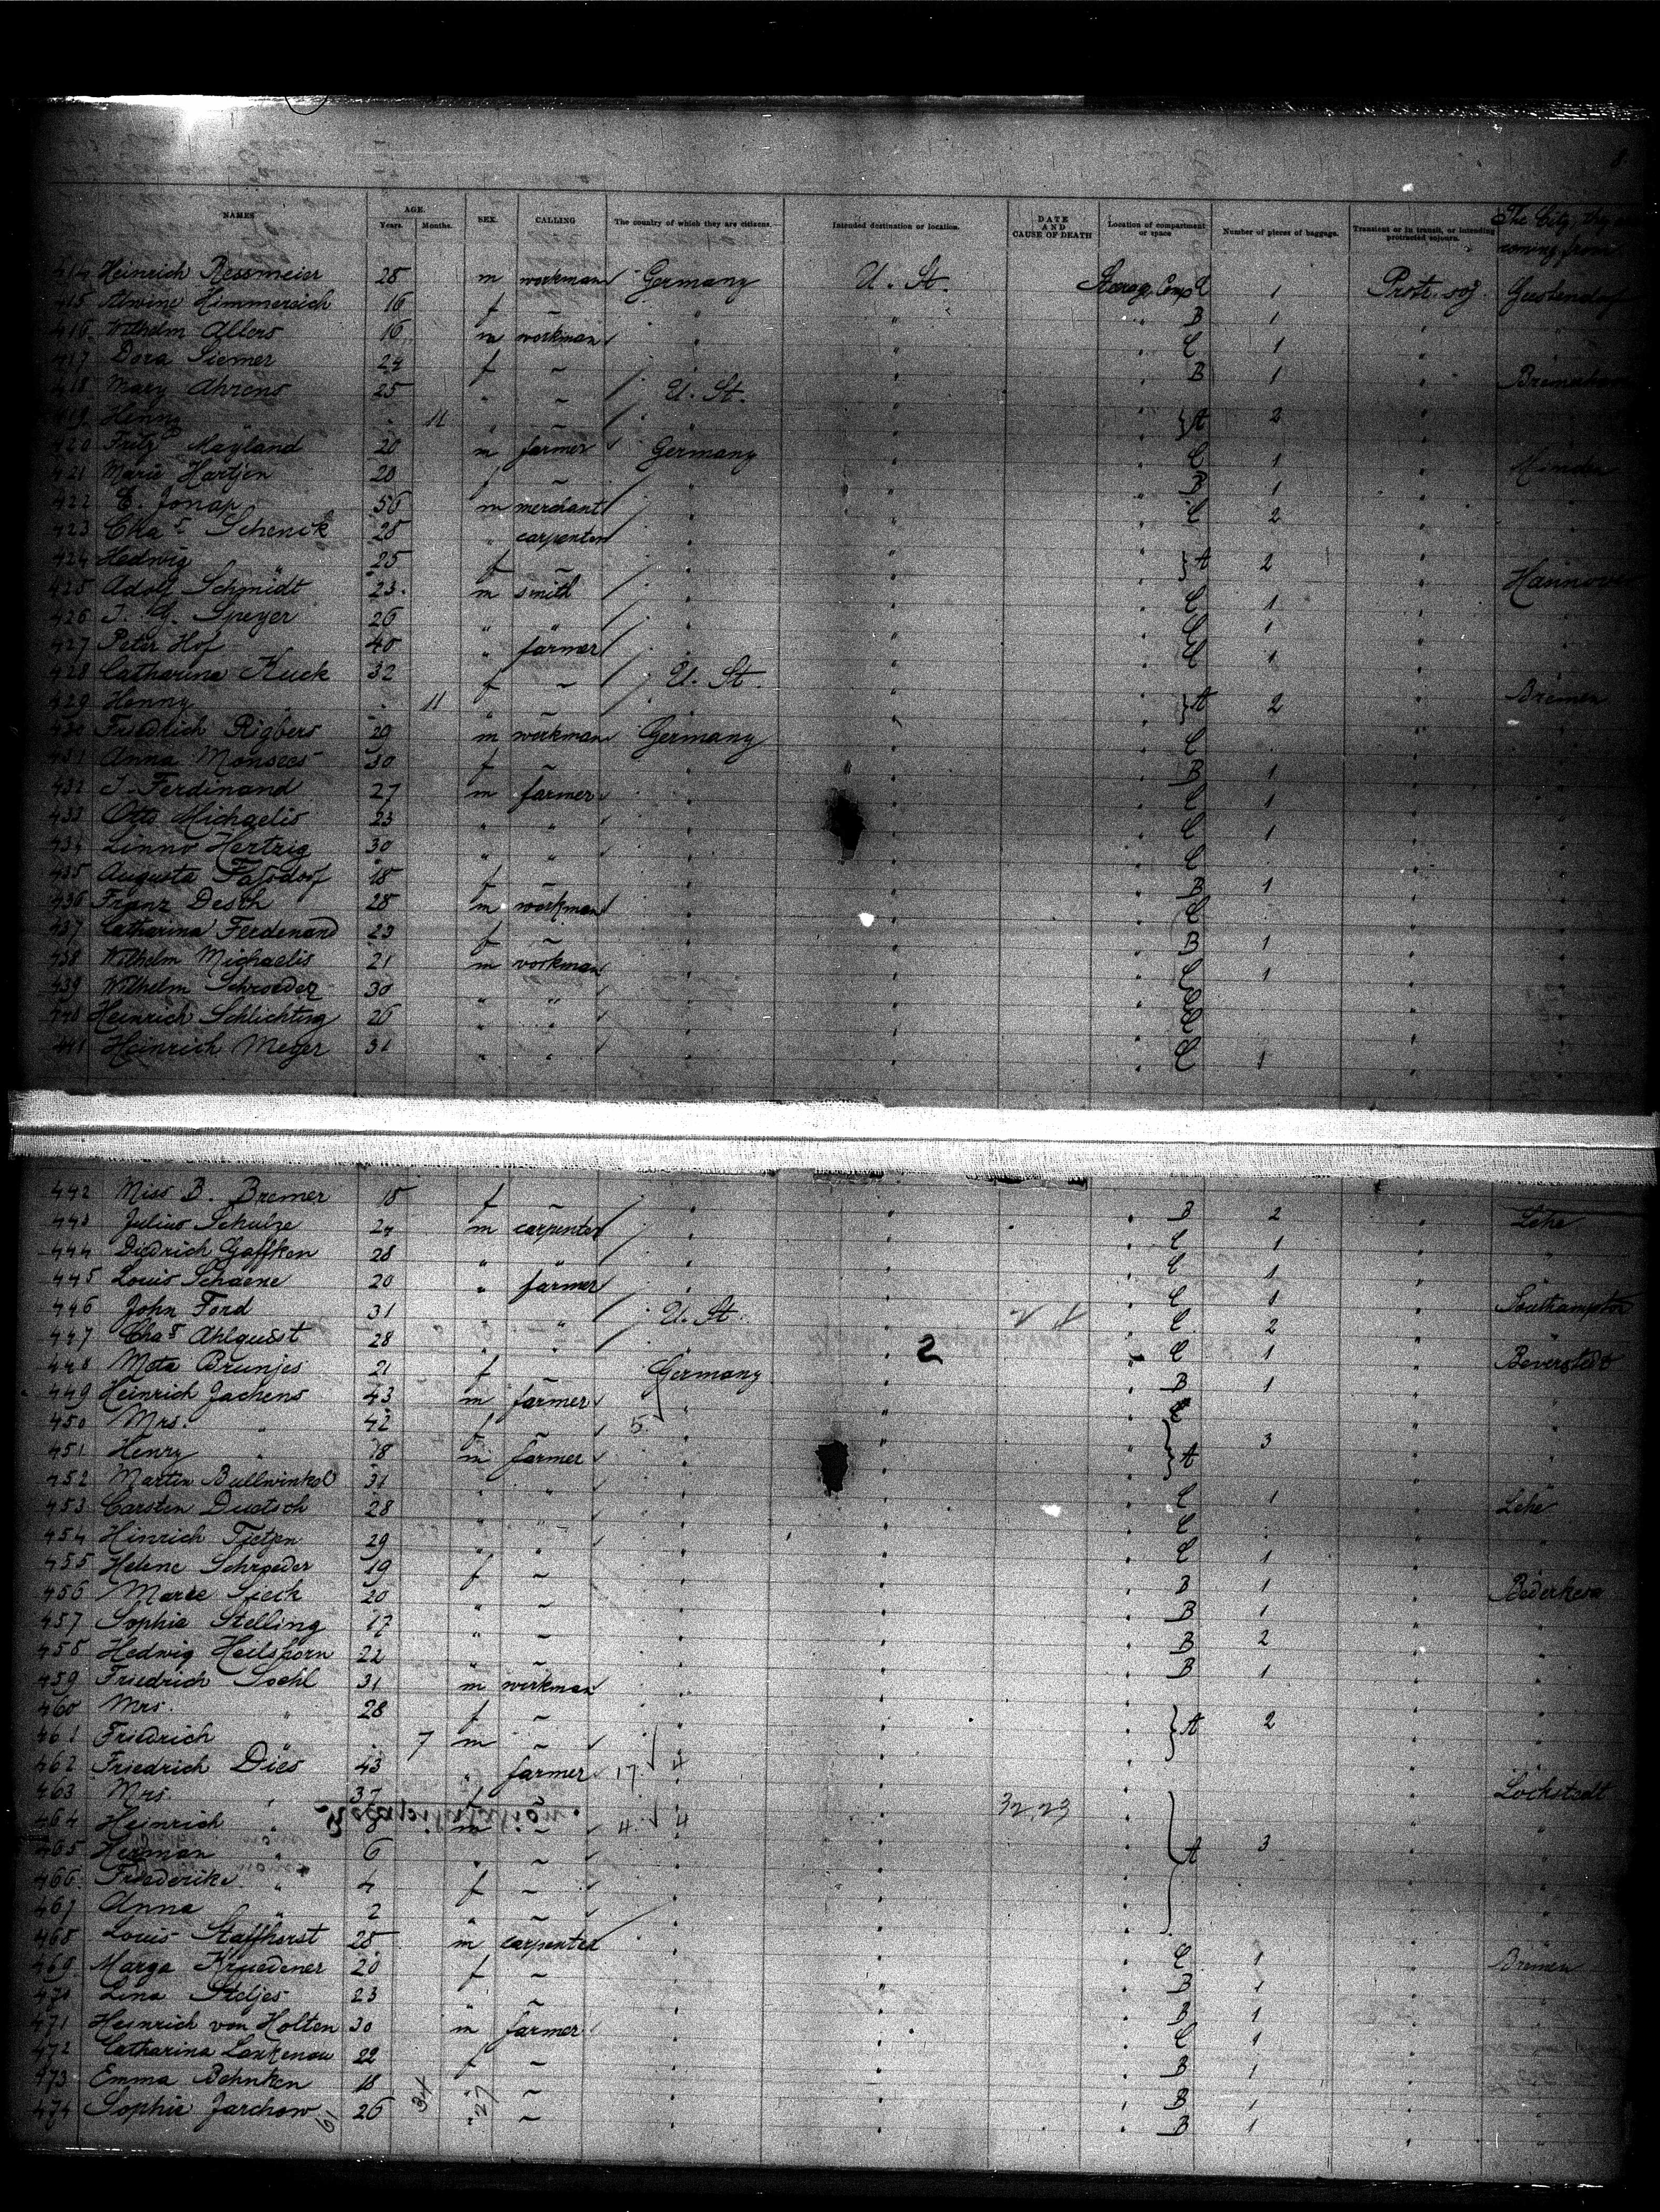 The City they coming from
NAMES AGE. Years. Months. SEX. CALLING The country of which they are citizens. Intended destination or location. DATE AND CAUSE OF DEATH Location of compartment or space Number of pieces of baggage. Transient or in transit, or intending protracted sojourn.
414 Heinrich Ressmeier 28 m workman Germany U. St. Steerage Comp C 1 Protr. soj.
415 Alwine Himmereich 16 f " " B 1 "
416 Wilhelm Allers 16 m workman " " C 1 "
417 Dora Siemer 24 f ~ " " B 1 "
418 Mary Ahrens 25 " ~ U. St. "
419 Henny " 11 " ~ " " A 2 "
420 Fritz Mayland 20 m farmer Germany " C 1 "
421 Marie Hartjen 20 f ~ " " B 1 "
422 E. Jonap 56 m merchant " " C 2 "
423 Chas Schenck 28 " carpenter " "
424 Hedwig " 25 f ~ " " A 2 "
425 Adolf Schmidt 23 m smith " " C 1 " Hannover
426 J. G. Speyer 26 " " " " C 1 "
427 Peter Hof 40 " farmer " " C 1 "
428 Catharina Kuck 32 f ~ U. St. "
429 Henny " 11 " ~ " " A 2 " Bremen
430 Friedrich Rigbers 29 m workman Germany " C "
431 Anna Monsees 30 f ~ " " B 1 "
432 J. Ferdinand 27 m farmer " " C 1 "
433 Otto Michaelis 23 " " " " C 1 "
434 Linno Hertzig 30 " " " " C "
435 Augusta Falsdorf 18 f ~ " " B 1 "
436 Franz Desch 28 m workman " " C "
437 Catharina Ferdenand 23 f ~ " " B 1 "
438 Wilhelm Michaelis 21 m workman " " C 1 "
439 Wilhelm Schroeder 30 " " " " C "
440 Heinrich Schlichting 26 " " " " C "
441 Heinrich Meyer 31 " " " " C 1 "
442 Miss B. Bremer 18 f " " B 2 " Lehe
443 Julius Schulze 24 m carpenter " " C 1 " "
444 Diedrich Gaffken 28 " " " " C 1 "
445 Louis Schaene 20 " farmer " " C 1 " Southampton
446 John Ford 31 " " U. St. " C 2 "
447 Chas Ahlquist 28 " " " 2 C 1 " Beverstedt
448 Meta Brunjes 21 f Germany " B 1 "
449 Heinrich Jachens 43 m farmer " " C "
450 Mrs. " 42 f 5. " " 3 "
451 Henry " 18 m farmer " " A "
452 Martin Bullwinkel 31 " " " " C 1 " Lehe
453 Carsten Duetsch 28 " " " " C "
454 Hinrich Tietjen 29 " " " " C 1 "
455 Helene Schroeder 19 f ~ " " B 1 " Bederkesa
456 Marie Sieck 20 " ~ " " B 1 "
457 Sophie Stelling 17 " ~ " " B 2 "
458 Hedwig Heilshorn 22 " ~ " " B 1 "
459 Friedrich Soehl 31 m workman " " "
460 Mrs. " 28 f ~ " " A 2 "
461 Friedrich " 7 m ~ " " "
462 Friedrich Dies 43 " farmer 17 4 " " Lockstedt
463 Mrs. " 37 f " " 32,23 "
464 Heinrich " 8 m ~ 4 4 " "
465 Herman " 6 " ~ " " A 3 "
466 Friederike " 4 f ~ " " "
467 Anna " 2 " ~ " " "
468 Louis Staffhorst 28 m carpenter " " C 1 " Bremen
469 Marga Kruedener 20 f ~ " " B 1 "
470 Lina Steljes 23 " ~ " " B 1 "
471 Heinrich von Holten 30 m farmer " " C 1 "
472 Catharina Lankenau 22 f ~ " " B 1 "
473 Emma Behnken 18 " ~ " " B 1 "
474 Sophie Jarchow 26 " ~ " " B 1 "
61 34 27